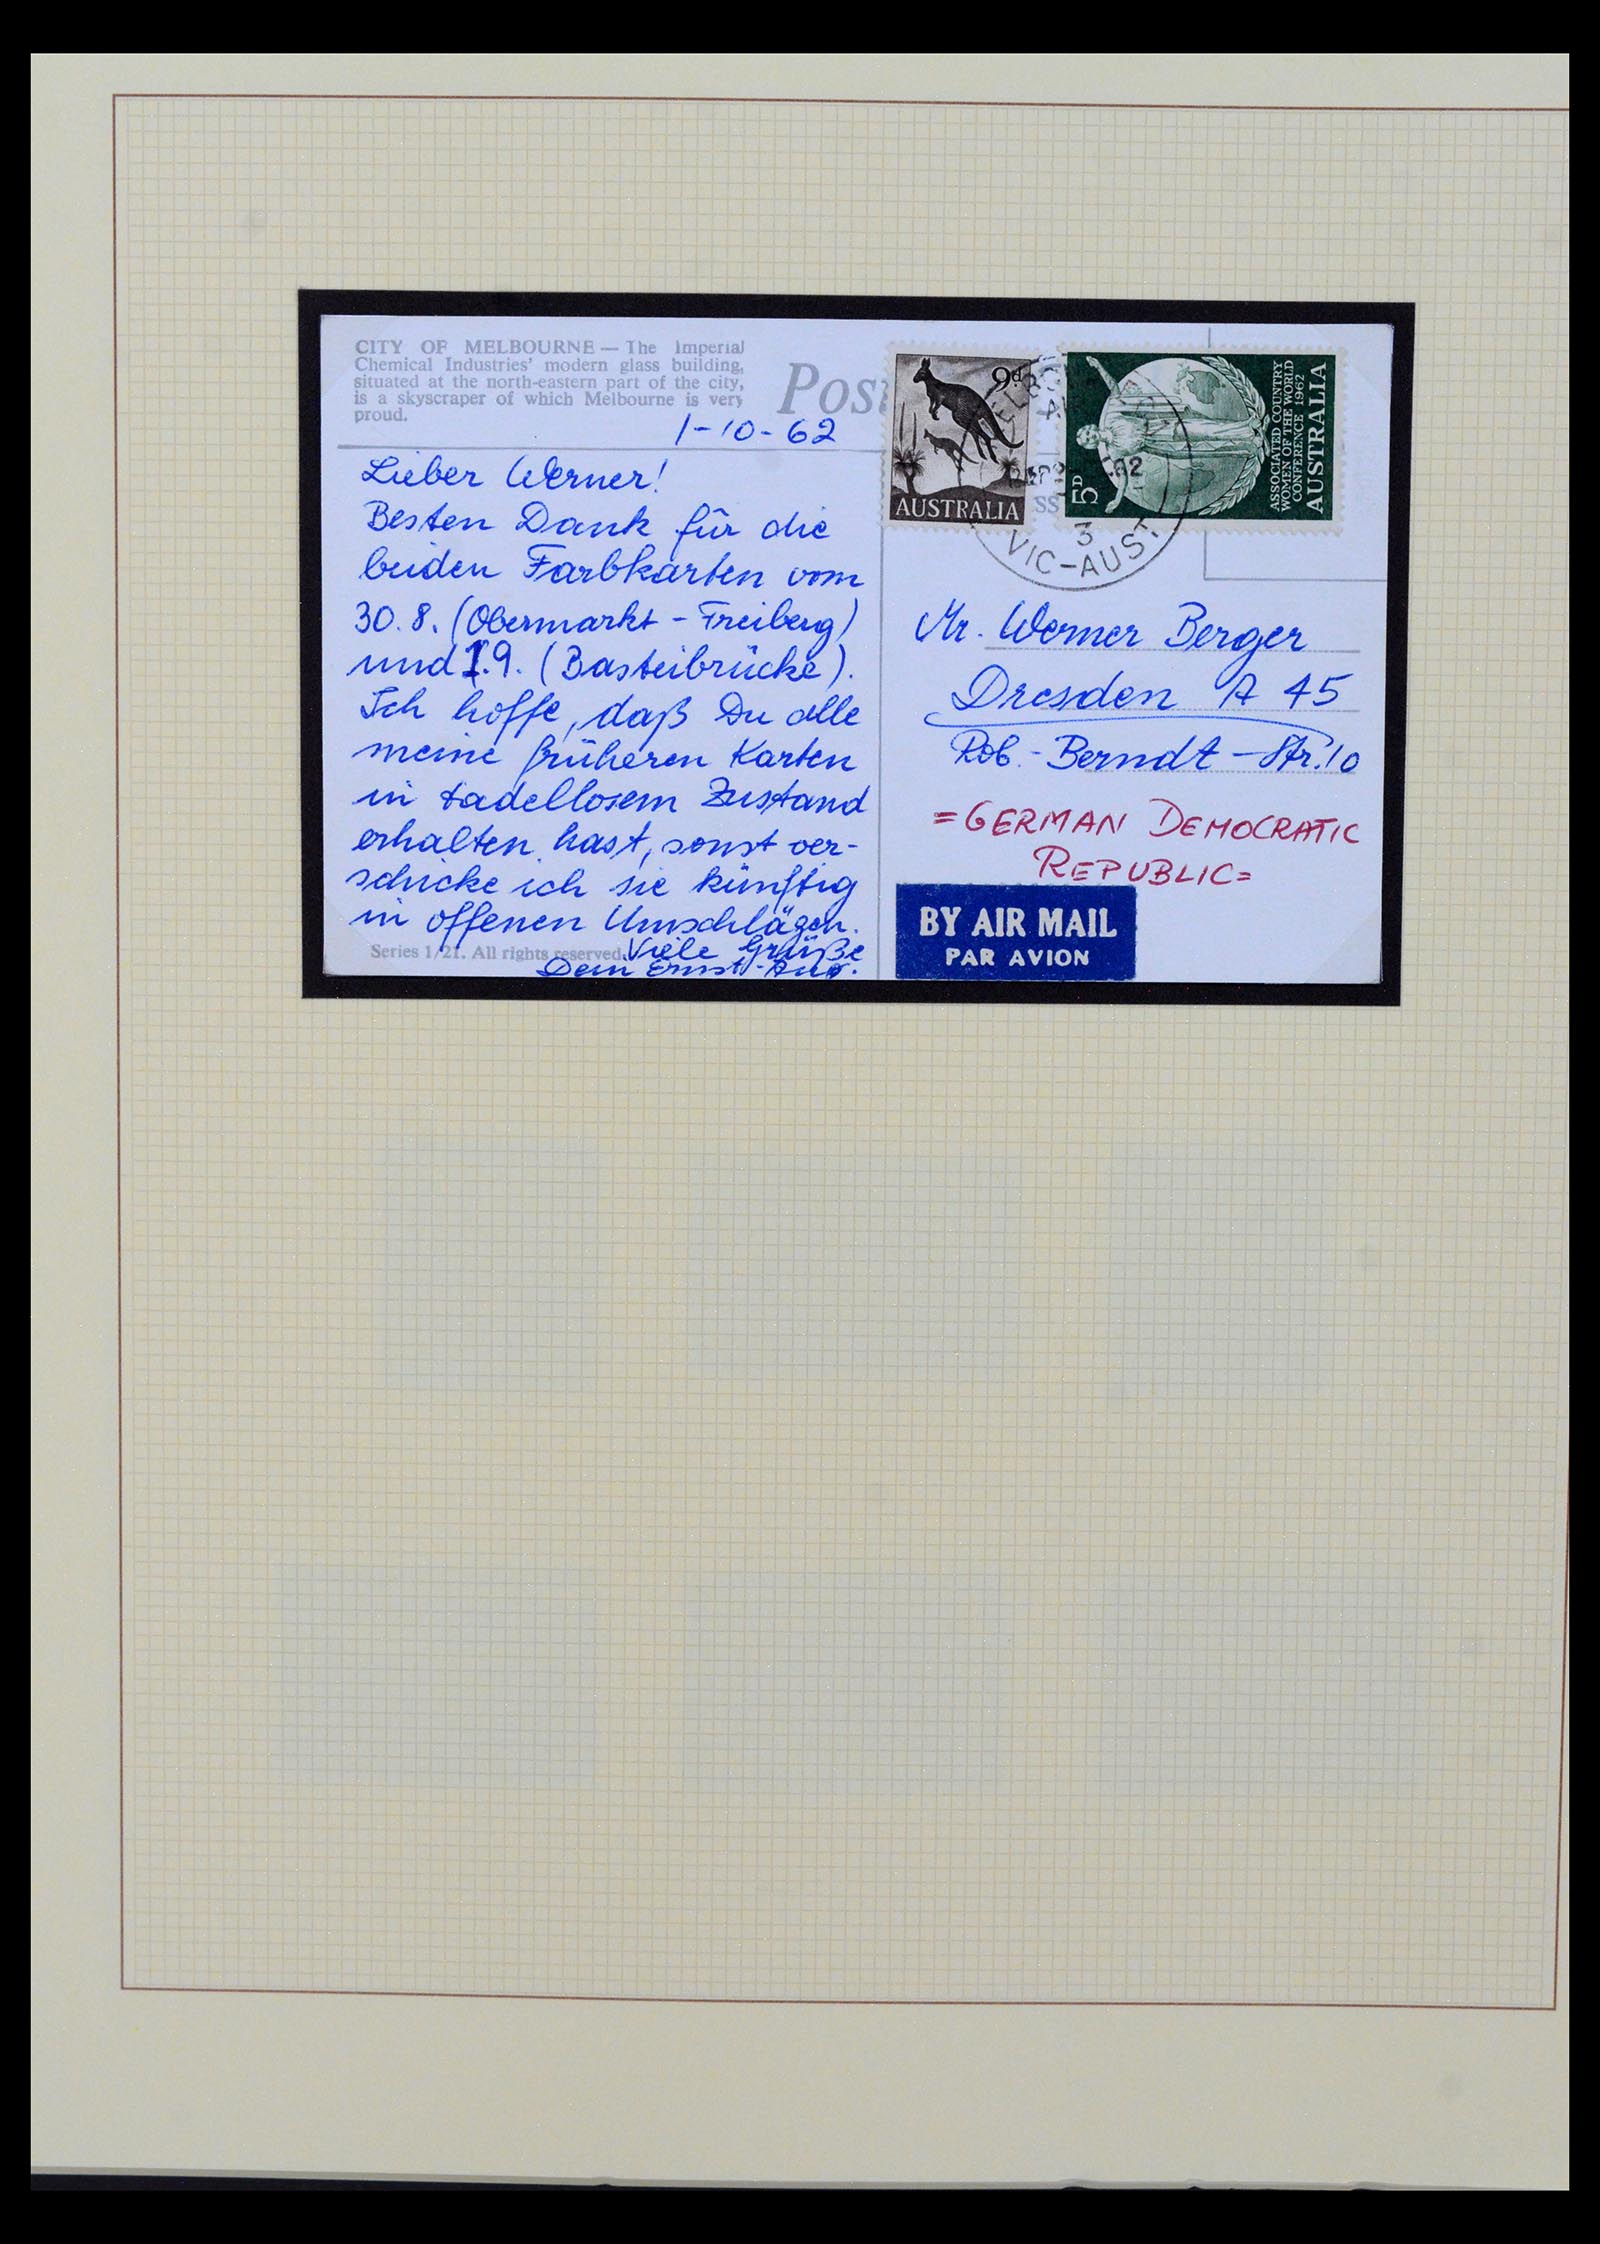 CITY OF MELBOURNE — The Imperial
Chemical Industries' modern glass building,
situated at the north-eastern part of the city,
is a skyscraper of which Melbourne is very
proud.
Pos
1-10-62
Lieber Werner!
Besten Dank für die
beiden Farbkarten vom
30.8. (Obermarkt - Freiberg)
und 1.9. (Basteibrücke).
Ich hoffe, daß Du alle
meine früheren Karten
in tadellosem Zustand
erhalten hast, sonst ver-
schicke ich sie künftig
in offenen Umschlägen.
Series 1/21. All rights reserved.
Viele Grüße
Dein Ernst-
9d
AUSTRALIA
5D
ASSOCIATED COUNTRY
WOMEN OF THE WORLD
CONFERENCE 1962
AUSTRALIA
SS
3
VIC-AUST
Mr. Werner Berger
Dresden A 45
Rob.-Berndt-Str. 10
=GERMAN DEMOCRATIC
REPUBLIC=
BY AIR MAIL
PAR AVION